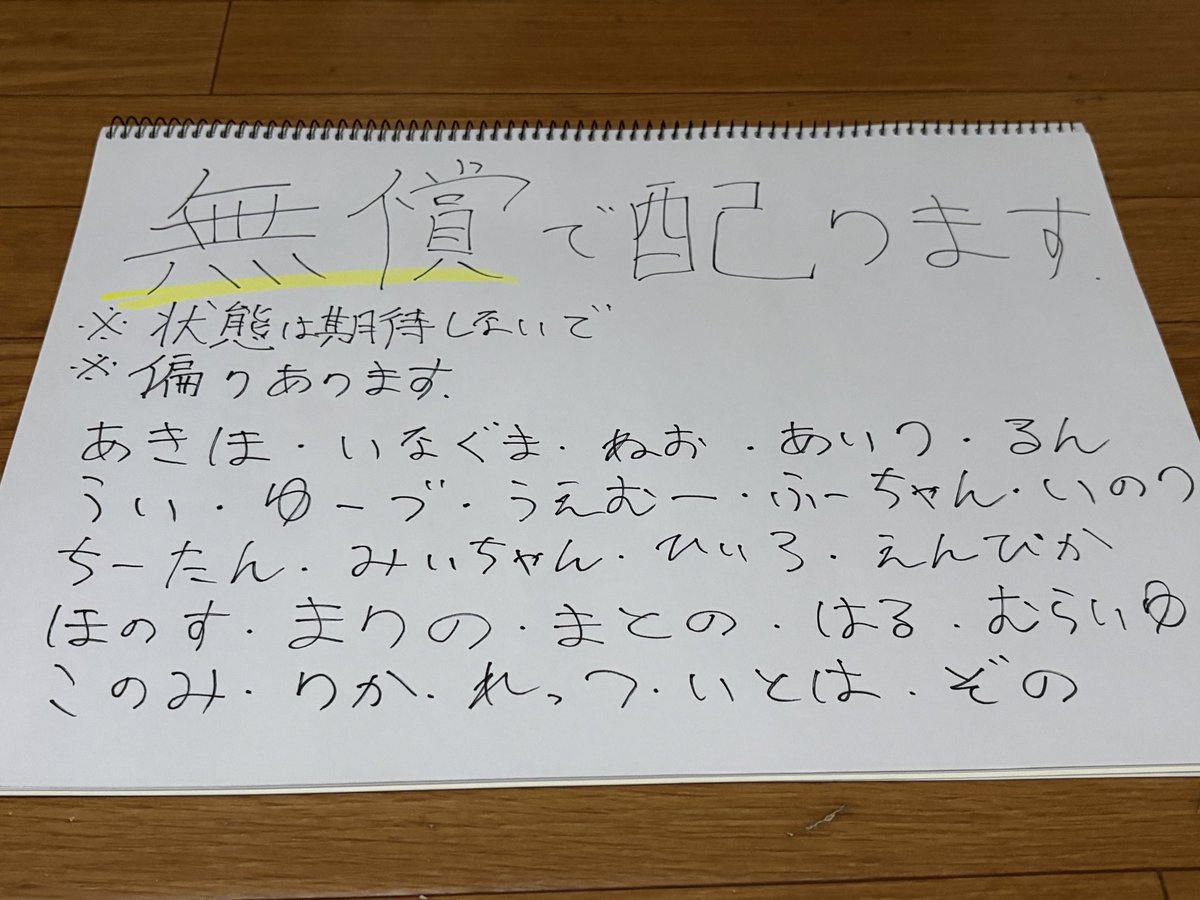 無償で配ります.
※状態は期待しないで
※偏りあります.
あきほ・いなぐま・ねお・あいり・るん
うい・ゆーづ・うえむー・ふーちゃん・いのり
ちーたん・みいちゃん・ひいろ・えんぴか
ほのす・まりの・まとの・はる・むらいゆ
このみ・りか・れっつ・いとは・ぞの